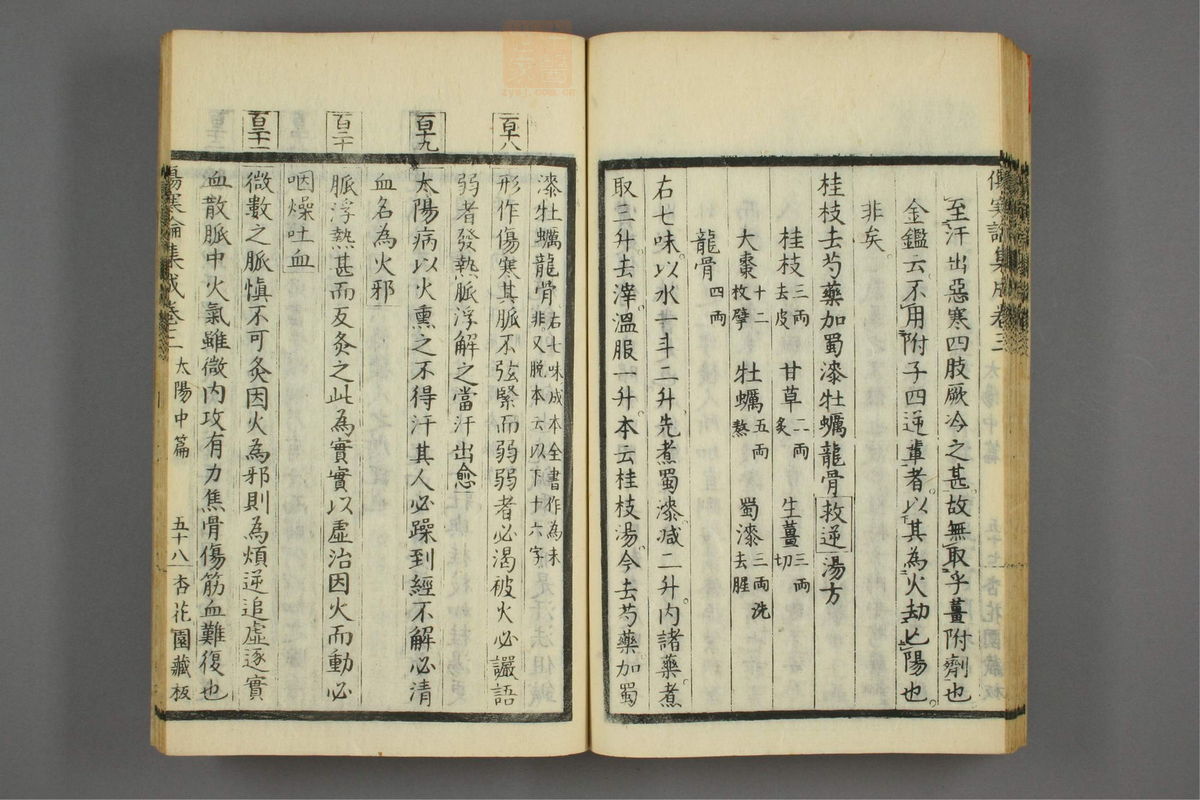 至汗出惡寒四肢厥冷之甚故無取乎薑附劑也
金鑑云不用附子四逆輩者以其為火劫亡陽也
非矣
桂枝去芍藥加蜀漆牡蠣龍骨救逆湯方
桂枝三兩去皮 甘草二兩炙 生薑三兩切
大棗十二枚擘 牡蠣五兩熬 蜀漆三兩洗去腥
龍骨四兩
右七味以水一斗二升先煮蜀漆減二升內諸藥煮
取三升去滓溫服一升本云桂枝湯今去芍藥加蜀
漆牡蠣龍骨右七味成本全書作為末非又脫本云以下十六字
百十八
形作傷寒其脈不弦緊而弱弱者必渴被火必讝語
弱者發熱脈浮解之當汗出愈
百十九
太陽病以火熏之不得汗其人必躁到經不解必清
血名為火邪
百二十
脈浮熱甚而反灸之此為實實以虛治因火而動必
咽燥吐血
百二十一
微數之脈慎不可灸因火為邪則為煩逆追虛逐實
血散脈中火氣雖微內攻有力焦骨傷筋血難復也
傷寒論集成卷三 太陽中篇 五十八 杏花園藏板